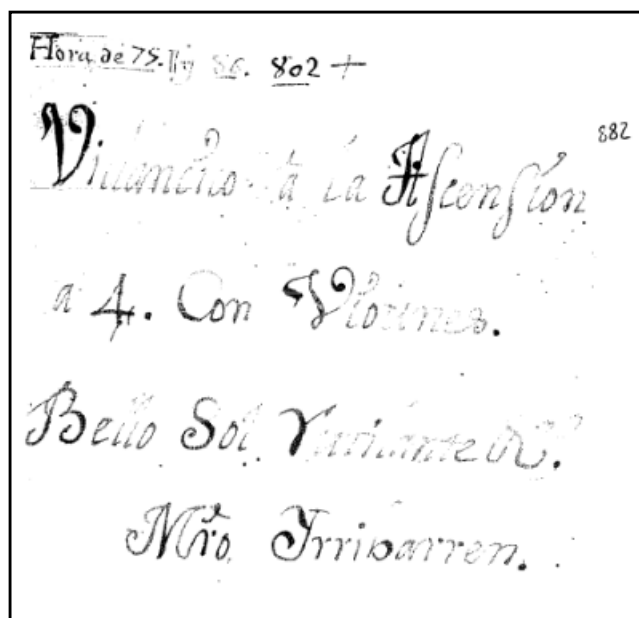 Hora de 75. y 86. 802 +
882
Villancico a la Ascension
a 4. Con Violines.
Bello Sol
Mro. Yrribarren.